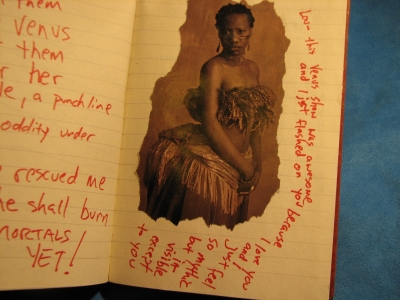 them
Venus
them
her
a punchline
oddity under
rescued me
he shall burn
MORTALS
YET!
Love this Venus show was awesome
and I just flashed on you because
I love you
and I just feel
so mythic
but in
visible
except
to you